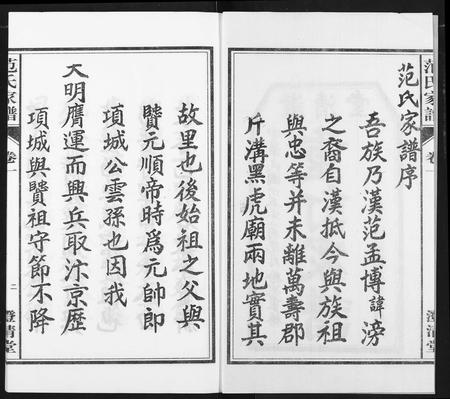 范氏家譜
卷一
澄清堂
范氏家譜序
吾族乃漢范孟博諱滂
之裔自漢抵今與族祖
與忠等并未離萬壽郡
斤溝黑虎廟兩地實其
故里也後始祖之父與
贒元順帝時爲元帥即
項城公雲孫也因我
大明膺運而興兵取汴京歷
項城與贒祖守節不降
范氏家譜
卷一
二
澄清堂